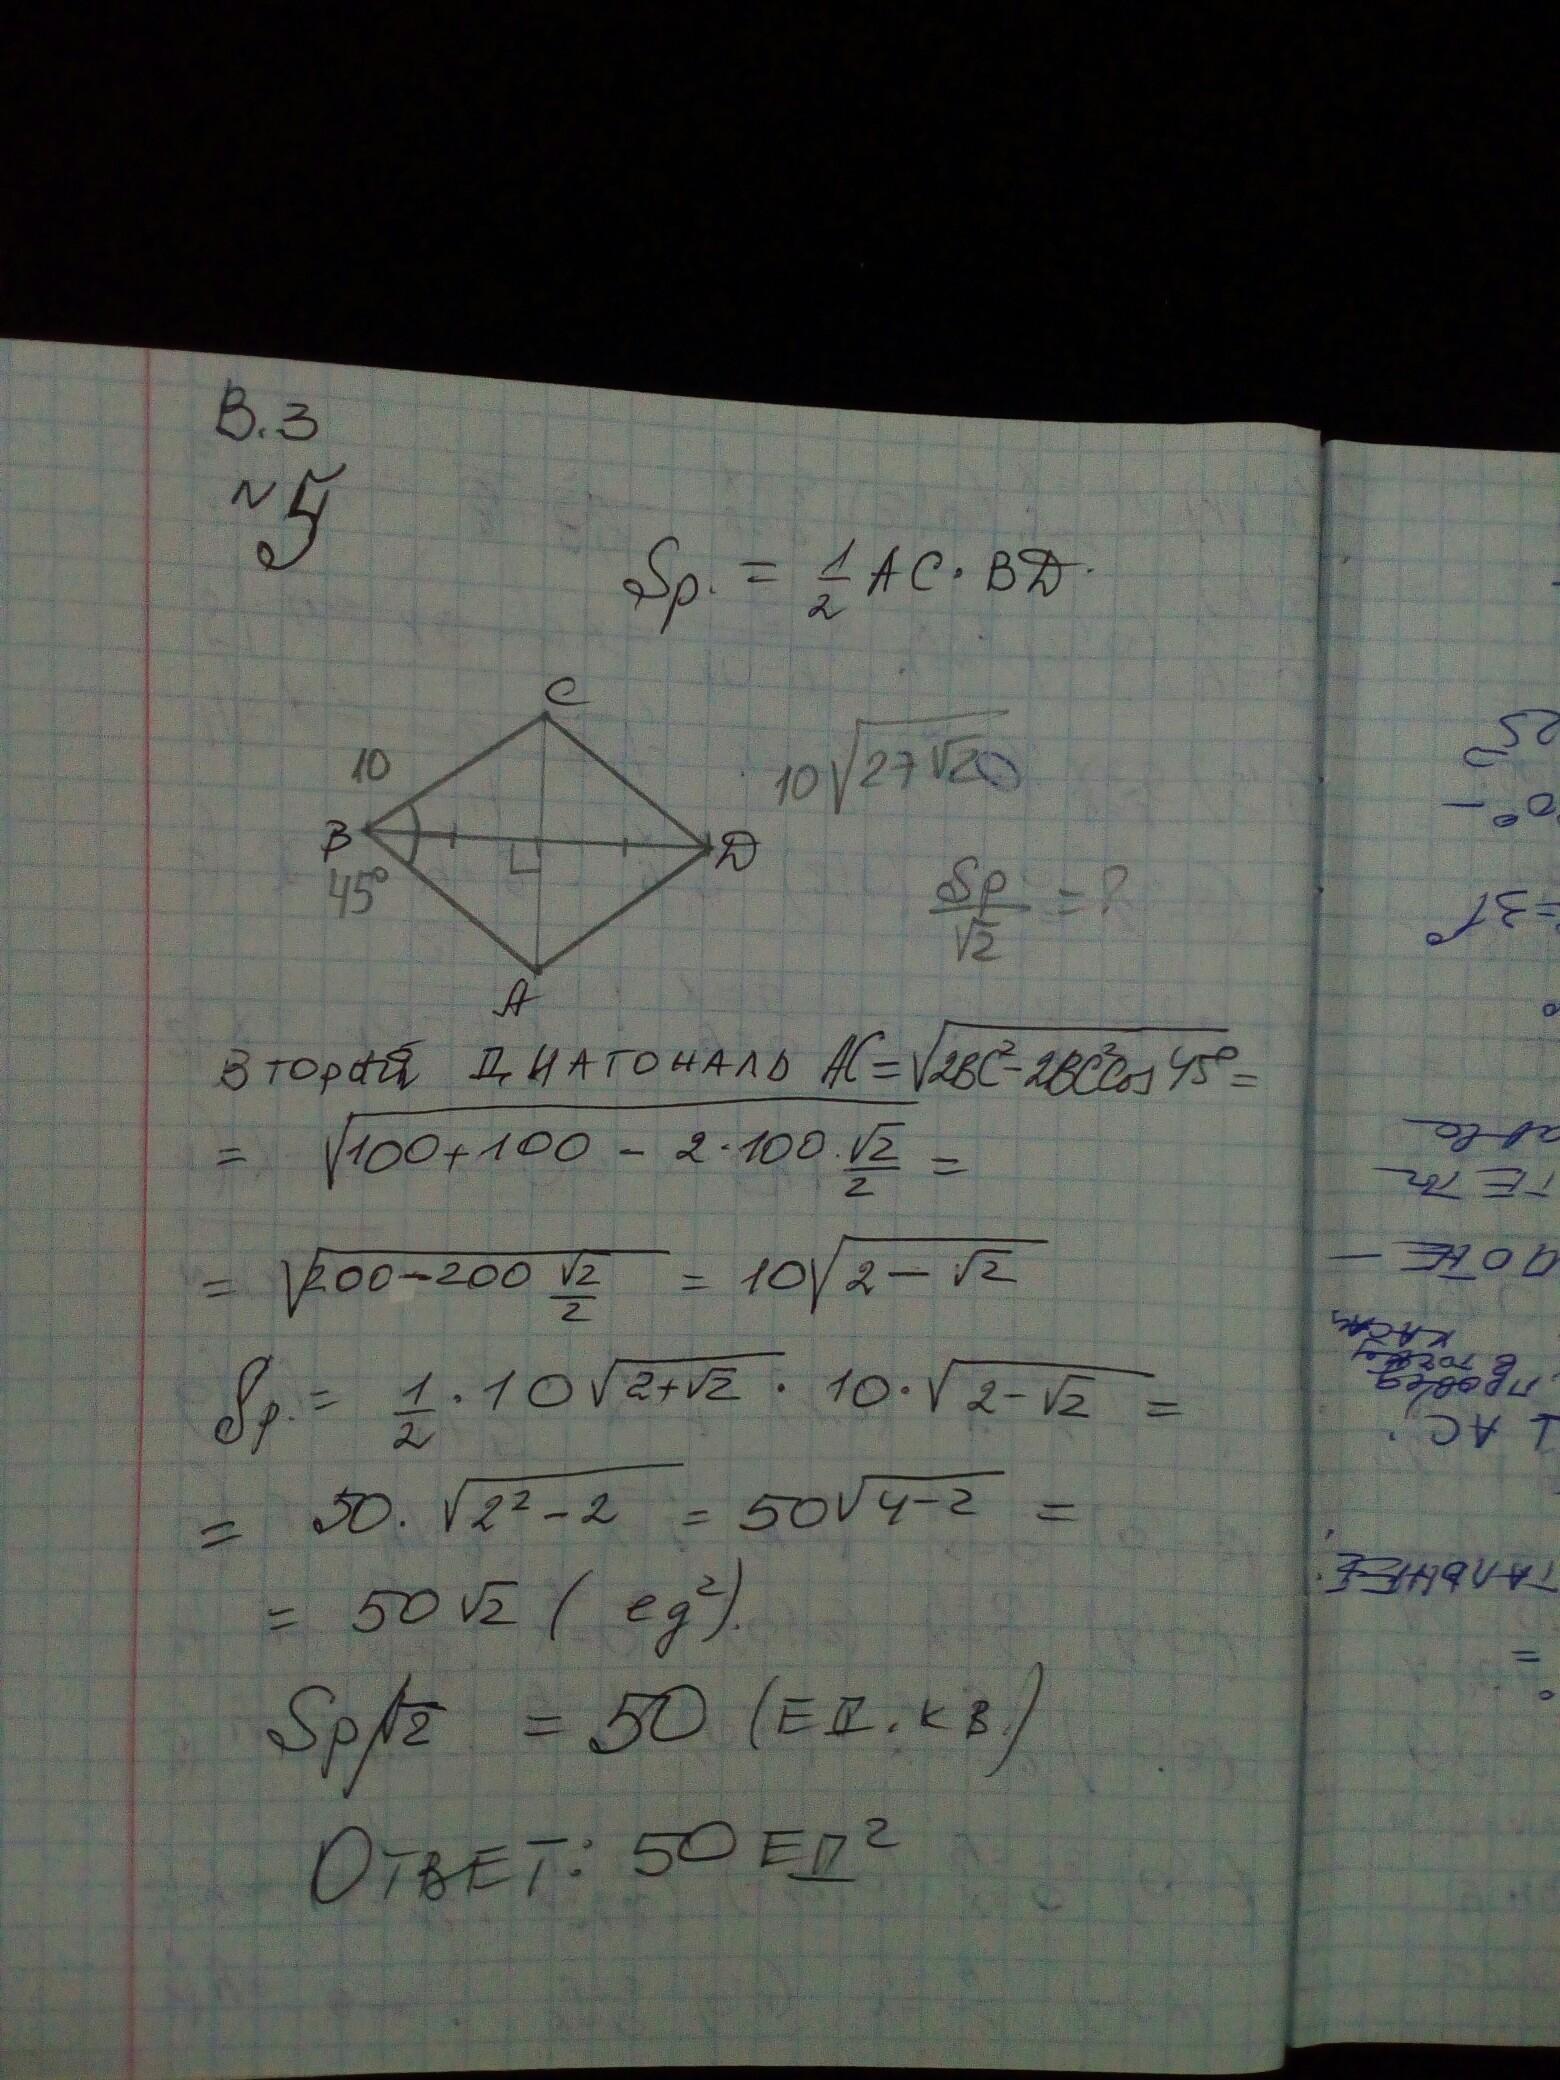 В.3
№5
Sр. = 1/2 AC · BD.
C
10
10√(27√20)
B
D
45°
Sр/√2 = ?
A
вторая диагональ AC = √(2BC² - 2BC² cos 45°) =
= √(100 + 100 - 2 · 100 · √2/2) =
= √(200 - 200 √2/2) = 10√(2 - √2)
Sр. = 1/2 · 10√(2+√2) · 10 · √(2 - √2) =
= 50 · √(2² - 2) = 50√(4-2) =
= 50√2 (ед²).
Sр/√2 = 50 (ед. кв.)
Ответ: 50 ед²
= 31°
⊥ AC.